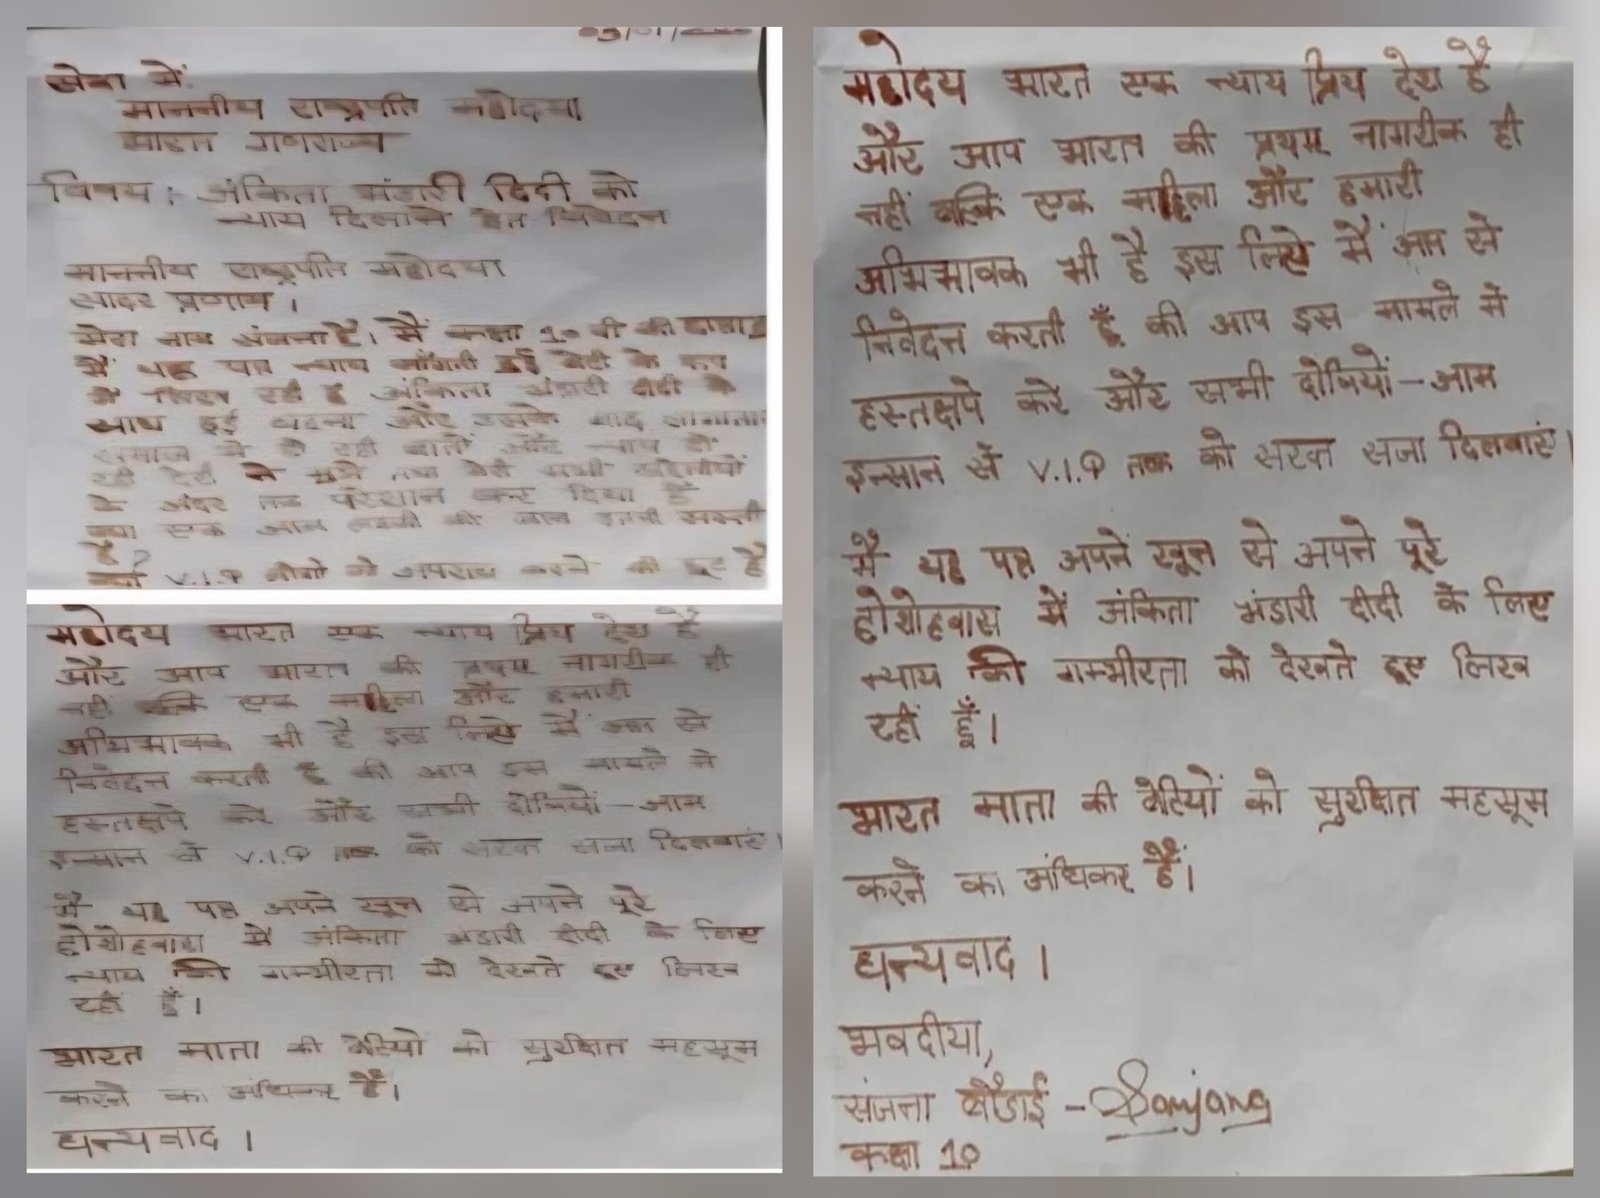 03/01/
सेवा में:
माननीय राष्ट्रपति महोदया
भारत गणराज्य
विषय : अंकिता भंडारी दिदी को
न्याय दिलाने हेतु निवेदन
माननीय राष्ट्रपति महोदया
सादर प्रणाम ।
मेरा नाम संजना है। मैं कक्षा 10 वी की छात्रा
मैं यह पत्र न्याय माँगती हुई बेटी के रूप
में लिख रही हूँ अंकिता भंडारी दीदी के
साथ हुई घटना और उसके बाद लगातार
समाज में हो रही बातों और न्याय में
रही देरी ने मुझे तथा मेरी सभी
के अंदर तक परेशान कर दिया है
क्या एक आम लड़की की जान इतनी सस्ती
है?
V.I.P लोगो को अपराध करने की छूट है
महोदय भारत एक न्याय प्रिय देश है
और आप भारत की प्रथम नागरीक ही
नहीं बल्कि एक महिला और हमारी
अभिभावक भी है इस लिये मैं आप से
निवेदन करती हूँ की आप इस मामले में
हस्तक्षपे करे और सभी दोषियों - आम
इन्सान से V.I.P तक को सख्त सजा दिलवाएं।
मैं यह पत्र अपने खून से अपने पूरे
होशोहवास में अंकिता भंडारी दीदी के लिए
न्याय की गम्भीरता को देखते हुए लिख
रही हूँ।
भारत माता की बेटियों को सुरक्षित महसूस
करने का अधिकार है।
धन्यवाद ।
महोदय भारत एक न्याय प्रिय देश है
और आप भारत की प्रथम नागरीक ही
नहीं बल्कि एक महिला और हमारी
अभिभावक भी है इस लिये मैं आप से
निवेदन करती हूँ की आप इस मामले में
हस्तक्षपे करे और सभी दोषियों - आम
इन्सान से V.I.P तक को सख्त सजा दिलवाएं।
मैं यह पत्र अपने खून से अपने पूरे
होशोहवास में अंकिता भंडारी दीदी के लिए
न्याय की गम्भीरता को देखते हुए लिख
रही हूँ।
भारत माता की बेटियों को सुरक्षित महसूस
करने का अधिकर है।
धन्यवाद ।
भवदीया,
संजना बौडाई - Sanjana
कक्षा 10